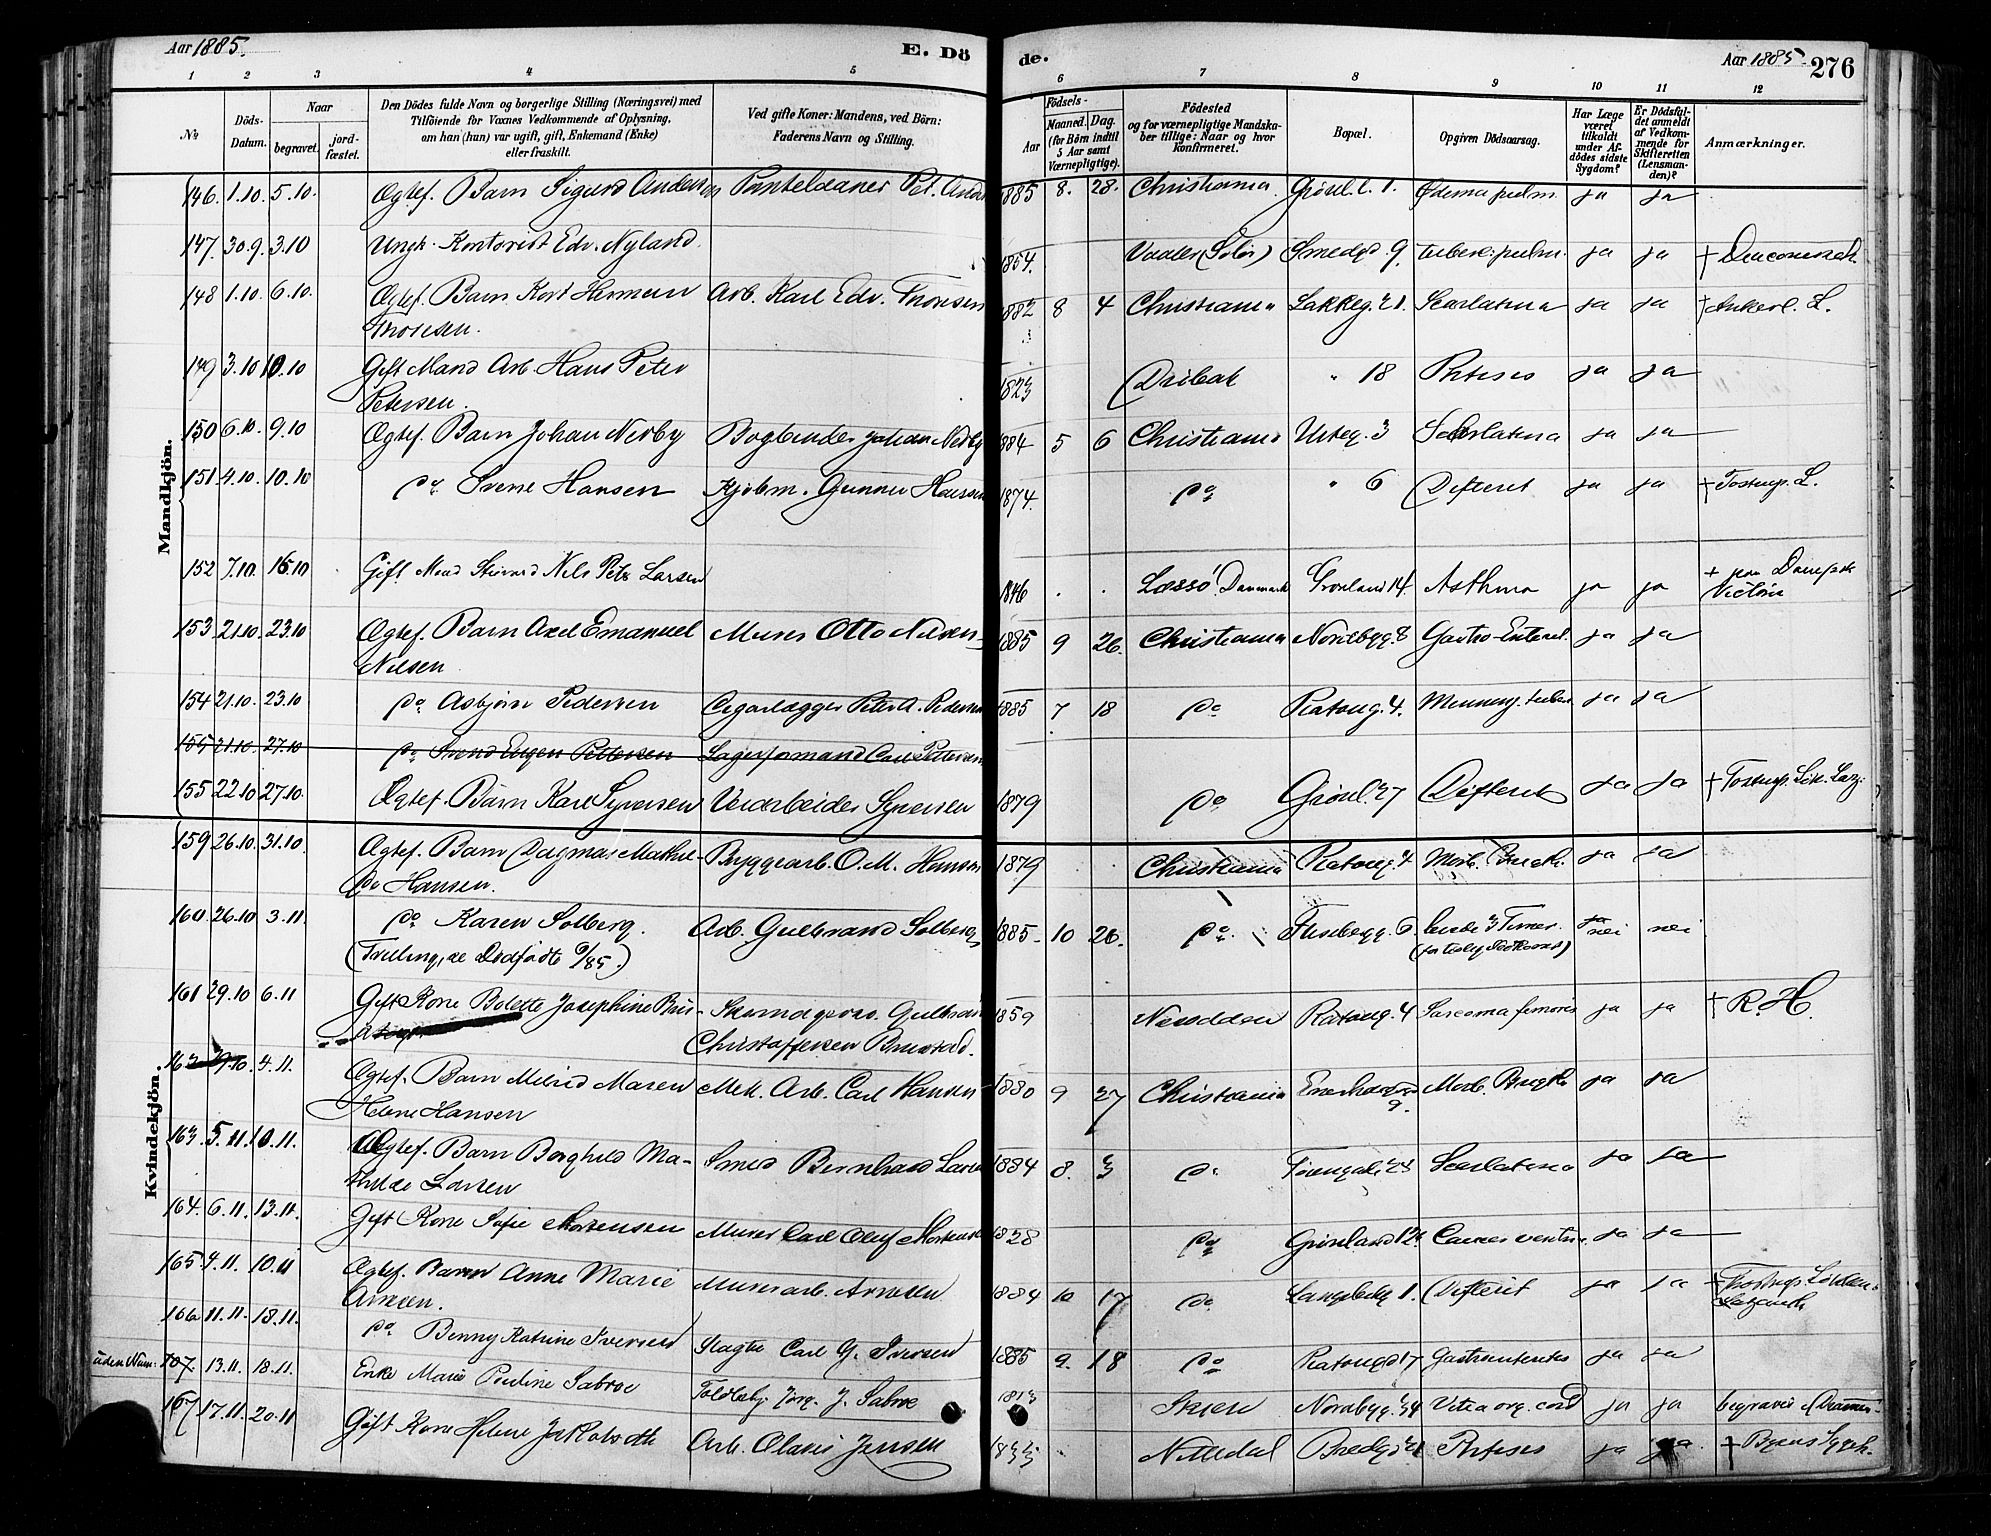 Aar 1885.
E. Dö
de.
Aar 1885
276
1 2 3 4 5 6 7 8 9 10 11 12
№
Döds-Datum.
Naar
begravet.
jord-fæstet.
Den Dödes fulde Navn og borgerlige Stilling (Næringsvei) med
Tilföiende for Voxnes Vedkommende af Oplysning,
om han (hun) var ugift, gift, Enkemand (Enke)
eller fraskilt.
Ved gifte Koner: Mandens, ved Börn:
Faderens Navn og Stilling.
Födsels-
Aar
Maaned.
Dag.
(for Börn indtil
5 Aar samt
Værnepligtige).
Födested
og for værnepligtige Mandska-
ber tillige: Naar og hvor
konfirmeret.
Bopæl.
Opgiven Dödsaarsag.
Har Læge
været
tilkaldt
under Af-
dödes sidste
Sygdom?
Er Dödsfal-
det anmeldt
af Vedkom-
mende for
Skifteretten
(Lensman-
den)?
Anmærkninger.
Mandkjön.
146. 1.10. 5.10. Ægtef. Barn Sigurd Andersen Panteldaner Pet. Ande 1885 8. 28. Christiania Grönl. L. 1. Ødema pulm. ja ja
147. 30.9. 3.10 Ungk. Kontorist Edv. Nyland. 1854. Vaaler (Solör) Smedgd 9. tuberc. pulm. ja ja † Diaconisseh.
148 1.10. 6.10. Ægtef. Barn Kort Herman Arb. Karl Edv. Thoresen 1882 8 4 Christiania Lakkeg. 21. Scarlatina ja ja † Ankerl. L.
Thoresen.
149 3.10 10.10 Gift Mand Arb. Hans Peter 1823 Dröbak " 18 Phtisis ja ja
Petersen.
150 6.10. 9.10 Ægtef. Barn Johan Nerby Bogbinder Johan Nerby 1884 5 6 Christiania Urteg. 3 Scarlatina ja ja
151 4.10. 10.10 do Svene Hansen Kjöbm. Gunner Hansen 1874. do " 6 Difterit ja ja † Tostrup. L.
152 7.10. 15.10 Gift Mand Stuvard Nils Petr Larsen 1846 . . Læssö Danmark Grönland 14. Asthma ja ja † paa Dampsk.
Victoria
153 21.10. 23.10 Ægtef. Barn Axel Emanuel Murer Otto Nilsen 1885 9 26. Christiania Nordbyg. 8 Gastro-Enterit. ja ja
Nilsen
154 21.10. 23.10 do Asbjörn Pedersen Cigarlægger Peter A. Pedersen 1885 7 18 do Platoug. 4. Mening. tuber ja ja
155 21.10. 27.10 do Svend Eugen Pettersen Lagerformand Carl Pettersen
155 22.10 27.10. Ægtef. Barn Karl Syversen Veiarbeider Syversen 1879 do Grönl. 27 Difterit ja ja † Tostrup. Lök. Laz.
Kvindekjön.
159 26.10. 31.10. Ægtef. Barn Dagmar Mathil- Bryggearb. O. M. Hansen 1879 Christiania Platoug. 4 Morb. Bright. ja ja
de Hansen.
160. 26.10 3.11. do Karen Solberg. Arb. Gulbrand Solberg 1885 10 26. do Flisebygg. levede 3 Timer nei nei
(Trilling, se Dödfödte 9/85.) (for tidlig Nedkomst)
161 29.10 6.11 Gift Kone Bolette Josephine Bru- Skomagersv. Gulbrand 1859 Nesodden Platoug. 4 Sarcoma femoris ja ja † R.H.
Christoffersen Brustad.
162 29.10. 4.11. Ægtef. Barn Milred Maren Mek. Arb. Carl Hansen 1880 9 27 Christiania Enerhaug 9. Morb. Bright. ja ja
Helene Hansen
163. 5.11. 10.11. Ægtef. Barn Borghild Ma- Smed Bernhard Larsen 1884 8. 3 do Töiengd. 23 Scarlatina ja ja
thilde Larsen
164. 6.11. 13.11. Gift Kone Sofie Mortensen Murer Carl Oluf Mortensen 1828 do Grönland 12 Cancer ventr. ja ja
165. 4.11. 10.11 Ægtef. Barn Anne Marie Murerarb. Arnesen 1884 10 17 do Langleikg 1. Difterit ja ja † Tostrup. Lökken
Arnesen. Lazareth
166 11.11. 18.11. do Benny Katrine Iversen Slagter Carl G. Iversen 1885 9. 18 do Platougd 17 Gastroenterites ja ja
uden Num. 167. 13.11. 18.11. Enke Marie Pauline Sabroe Toldbetj. Jörg. J. Sabroe 1813 Skien Nordbyg. 34 Vitia org. cord ja ja begravet i Drammen
167 17.11. 20.11 Gift Kone Helene Jakobsdth Arb. Olavis Jensen 1833 Nittedal Bredgd 21 Phtisis ja ja † Byens Sygeh.